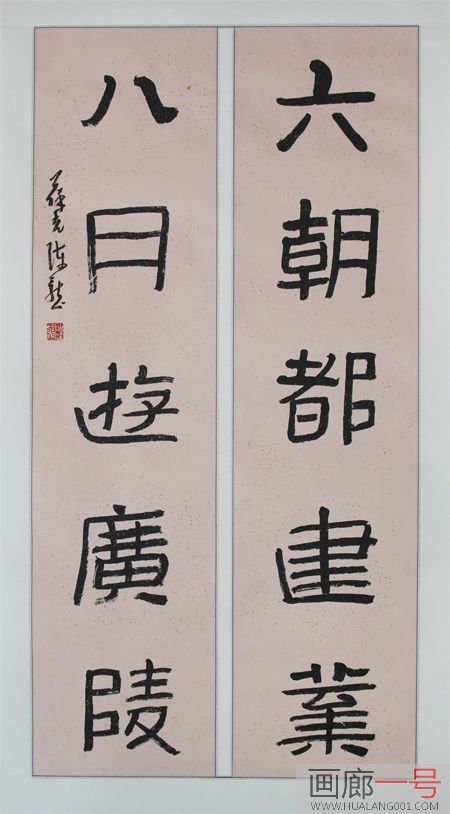 六朝都建業
八日遊廣陵
画廊一号
WWW.HUALANG001.COM